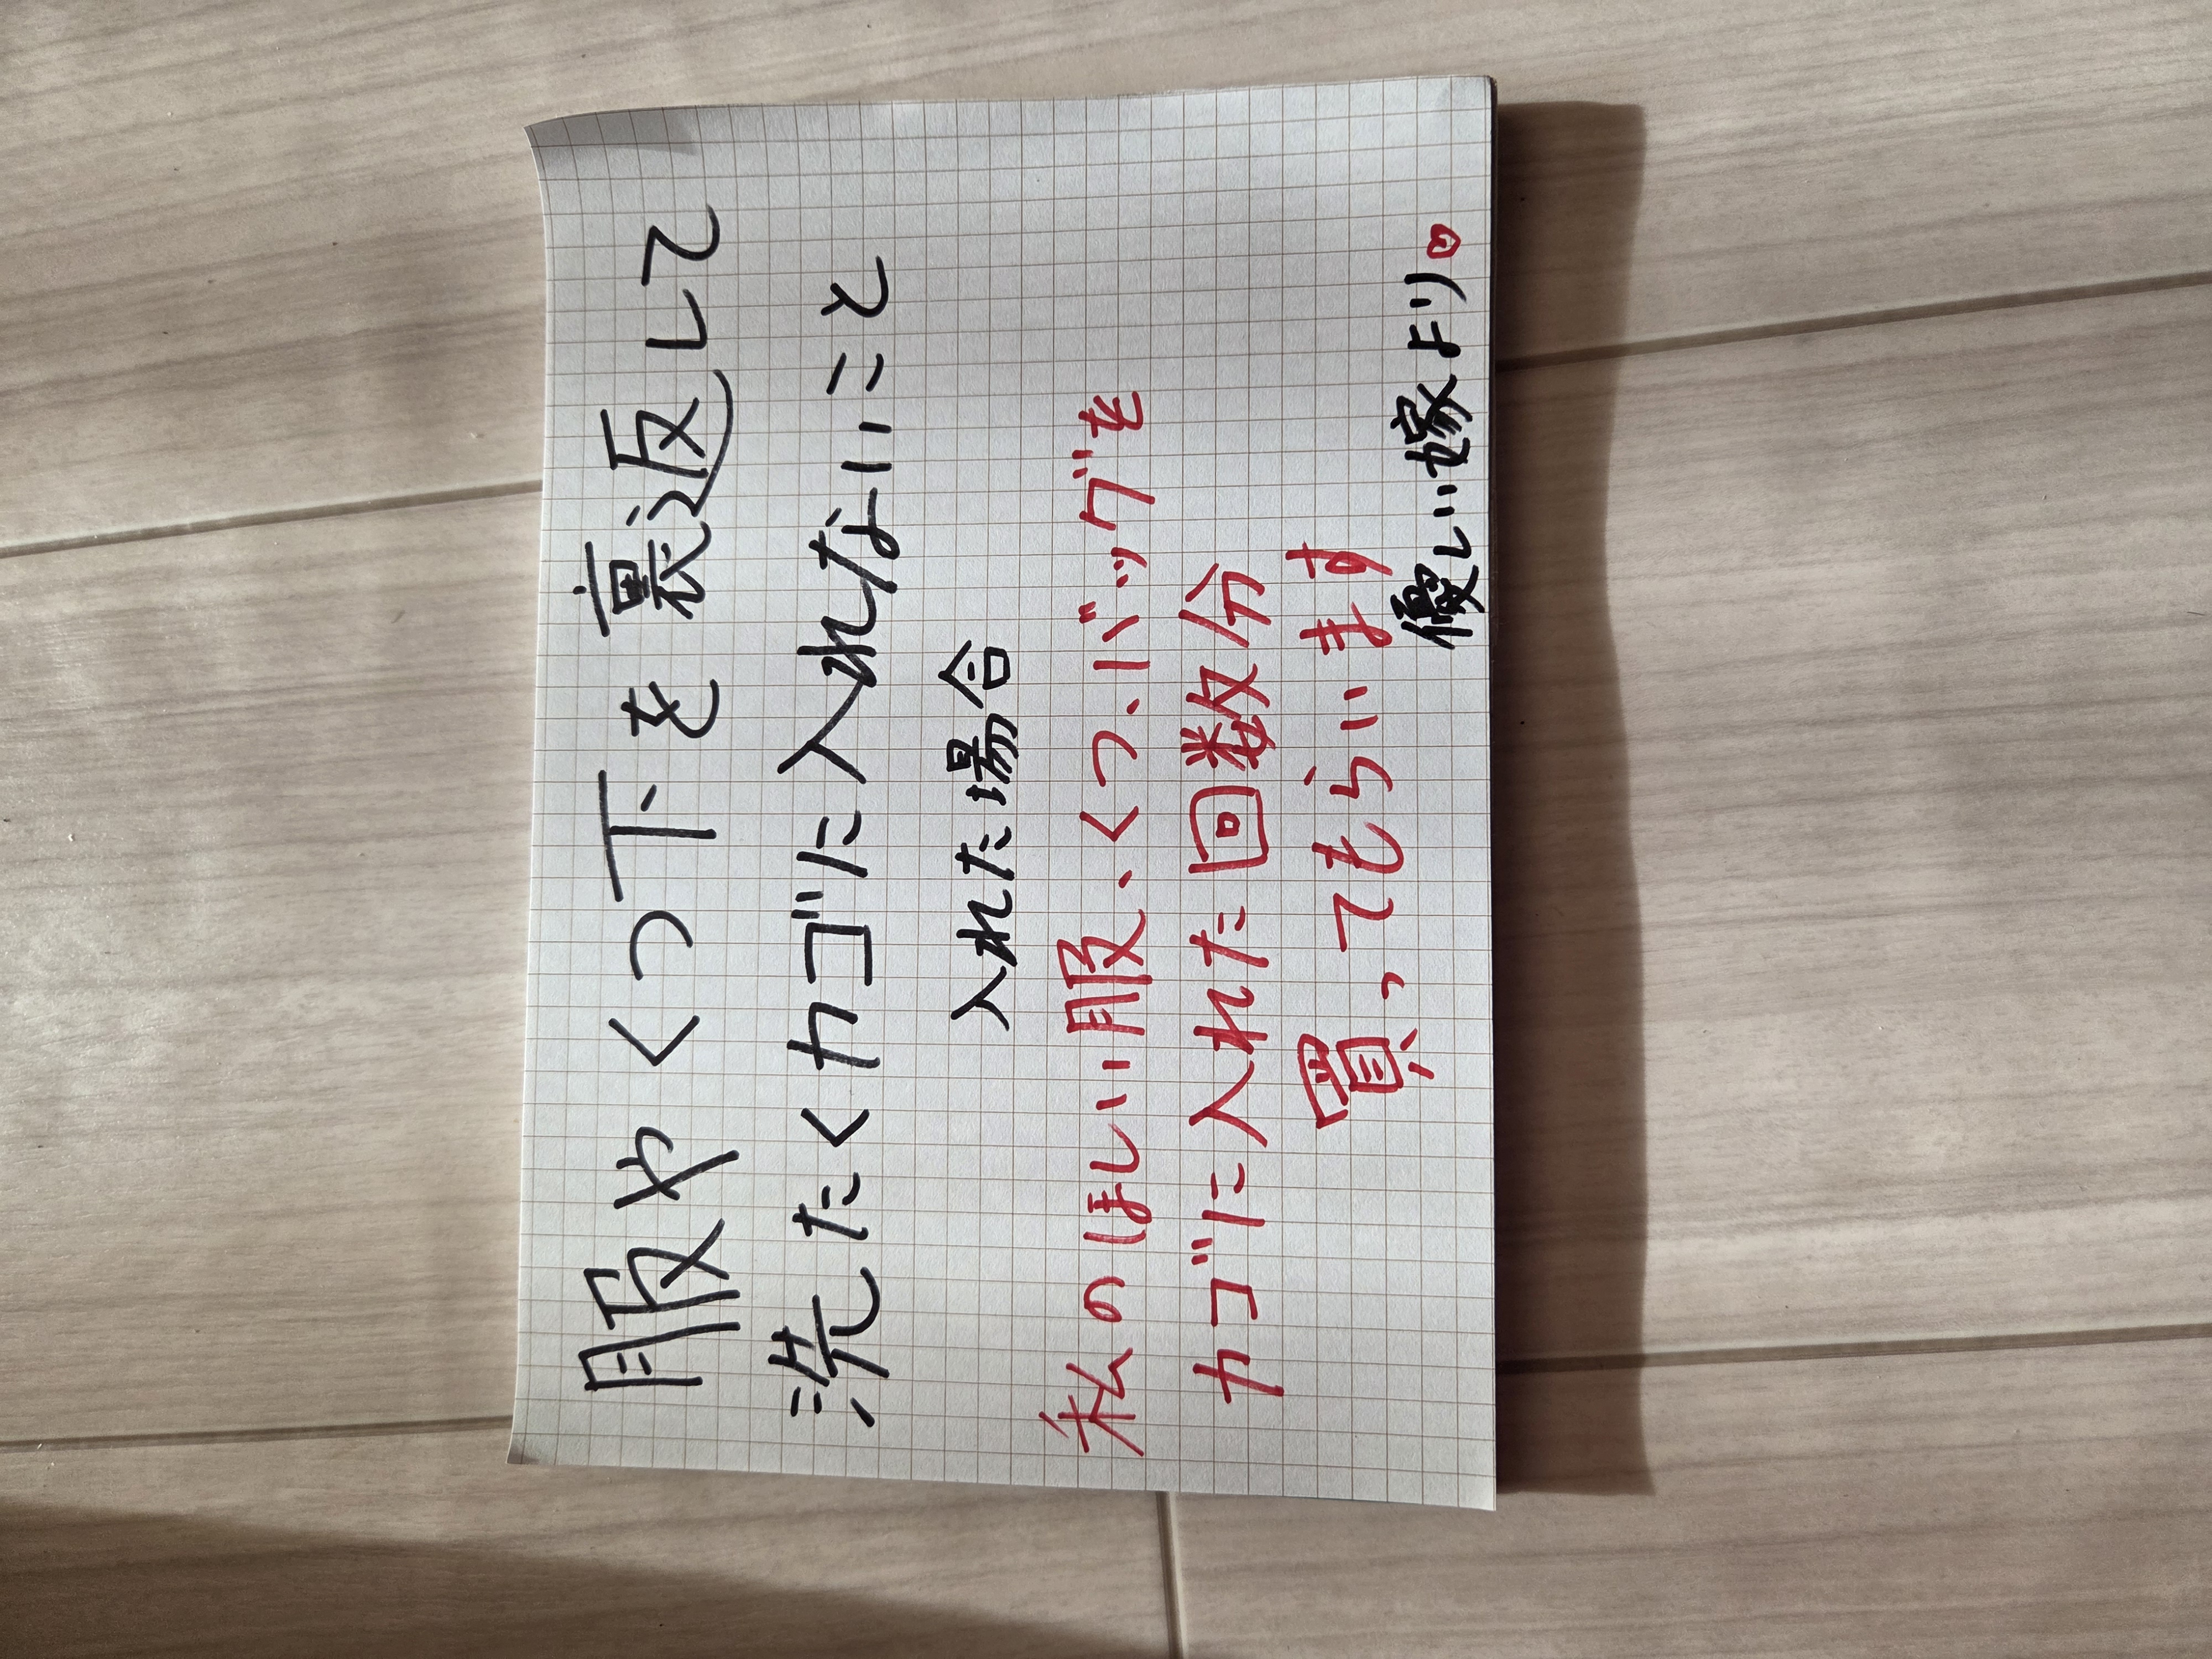 服やくつ下を裏返して
洗たくカゴに入れないこと
入れた場合
私のほしい服、くつ、バッグを
カゴに入れた回数分
買ってもらいます
優しい嫁より♡